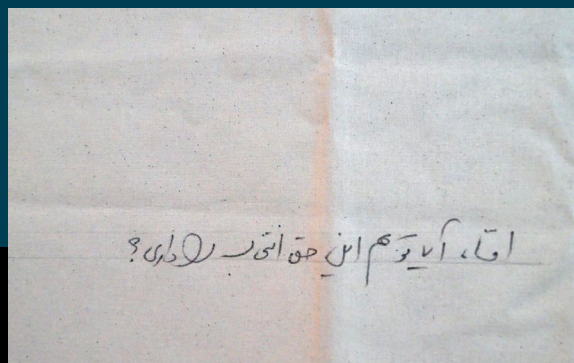 امّا، آیا تو هم این حق انتخاب را داری؟